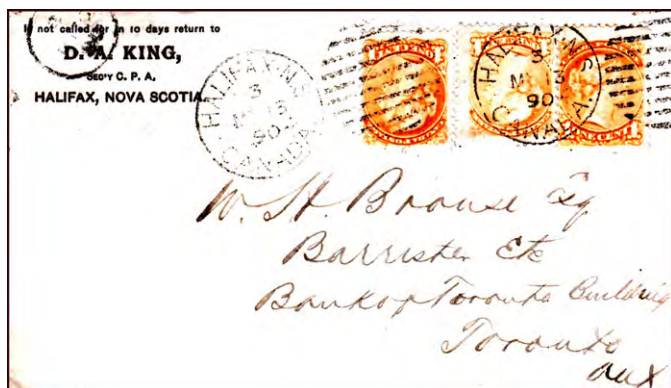 If not called for in 10 days return to
D. A. KING,
SEC'Y C. P. A.
HALIFAX, NOVA SCOTIA.
HALIFAX N.S.
3
13
90
CANADA
HALIFAX N.S.
3
13
90
CANADA
W. H. Brouse Esq
Barrister Etc
Bank of Toronto Building
Toronto
Ont